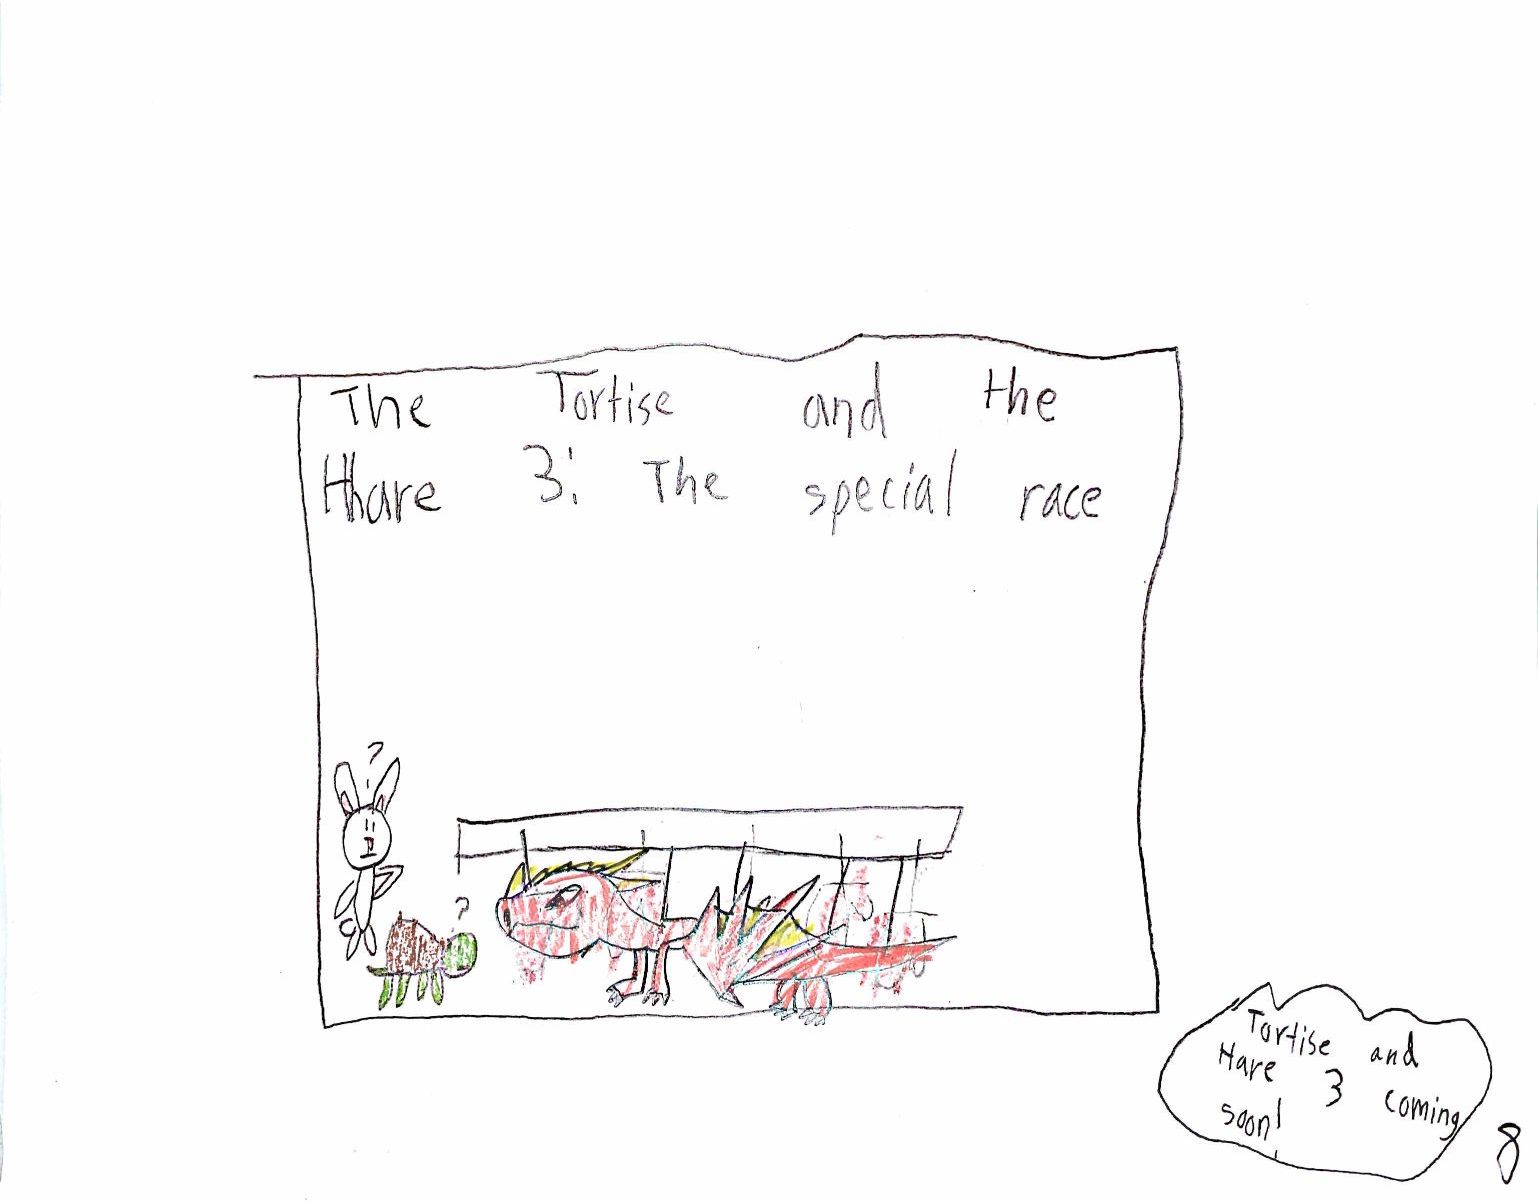 The Tortise and the
Hhare 3: The special race
?
?
Tortise and
Hare 3 coming
soon!
8